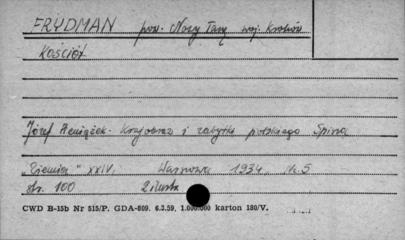 FRYDMAN pow. Nowy Targ woj. Kraków
KOŚCIÓŁ
Józef Pieniążek - Krajobraz i zabytki polskiego Spisza
„Ziemia" XXIV. Warszawa 1934, Nr. 5
str. 100 2 ilustr.
CWD B-15b Nr 515/P. GDA-809. 6.3.59, 1.000.000 karton 180/V.